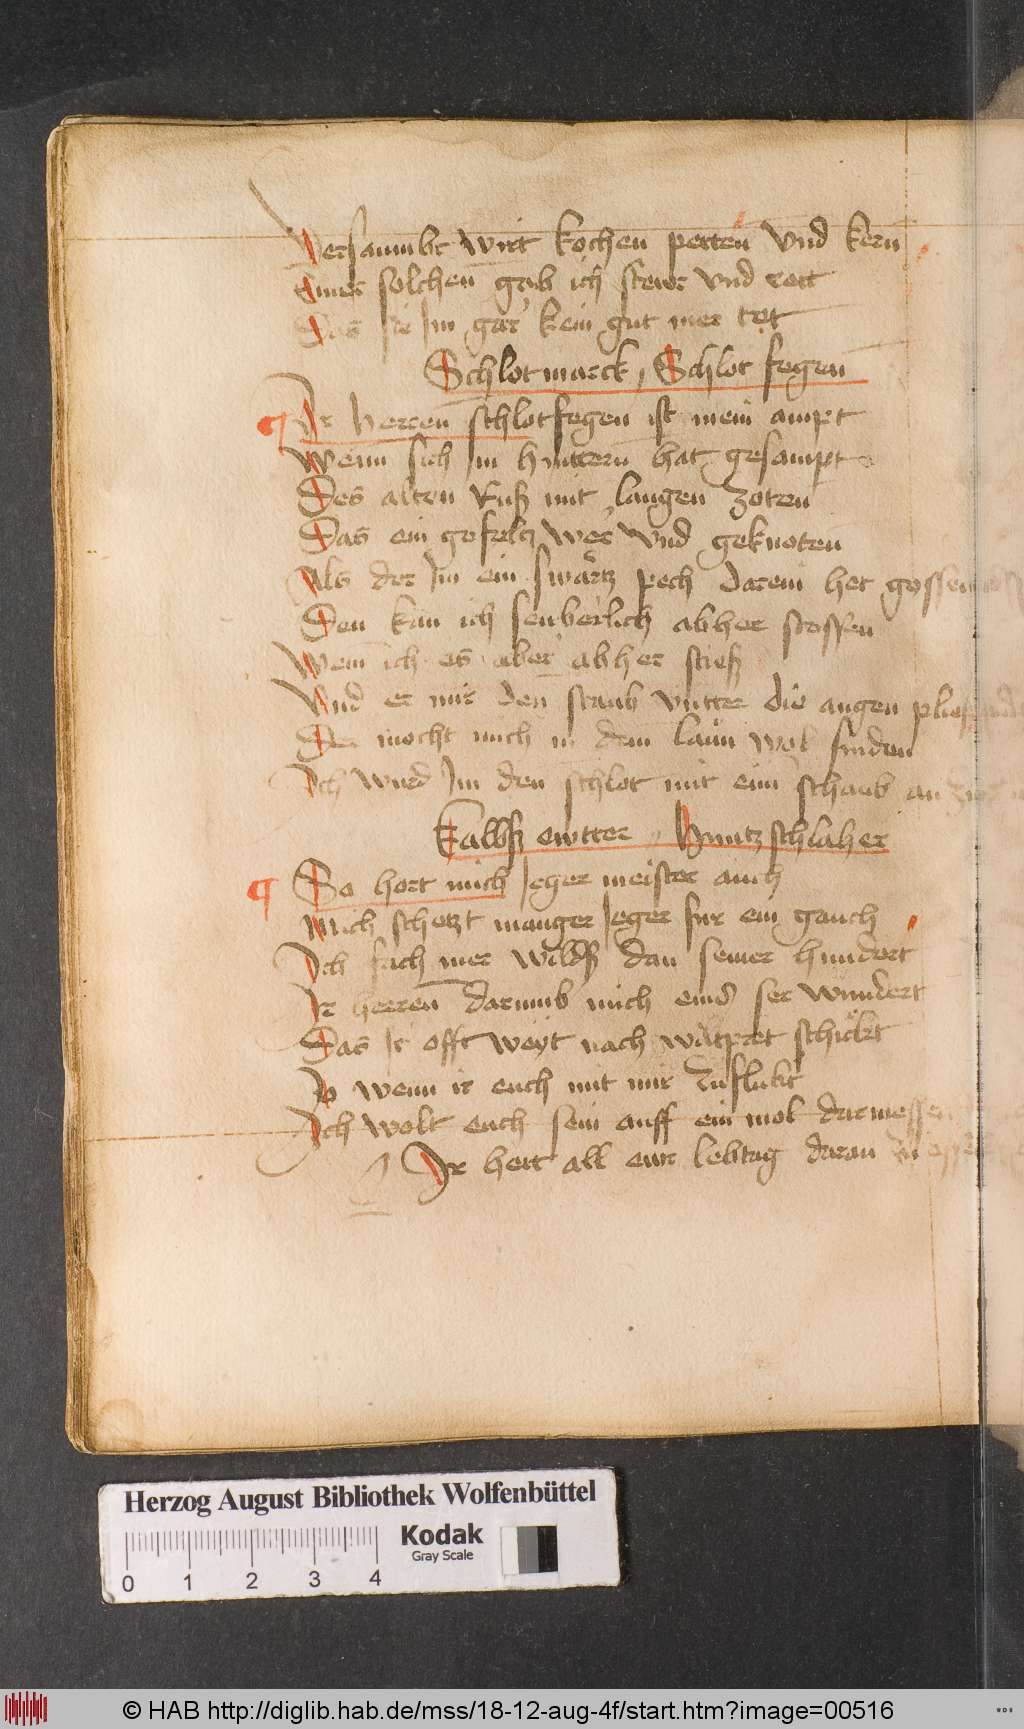 Versaumbt wirt kochen petten vnd kern
Einer solchen gab ich stewr vnd rott
Das sie Im gar kein gut mer tet
Schlotmarck, Schlot fegen
Ir herren schlotfegen ist mein ampt
Wenn sich Im hinttern hat gesampt
Des alten Ruß mit langen zoten
Das ein gefeltz wer vnd geknoten
Als der Im ein swartz pech darein het gossen
Den kan ich seuberlich abher stossen
Wenn ich es aber abher stieß
Vnd er mir den staub vntter die augen pließ
Der mocht mich in dem laun wol finden
Ich wurd Im den schlot mit eim schaub an
Kalbß ewtter, Huntzschlaher
So hort mich Jeger meister auch
Mich schetzt manger Jeger fur ein gauch
Ich fach mer wildß dan seiner hundert
Ir herren darumb mich eins ser wundert
Das Ir offt weyt nach wiltpret schickt
So wenn ir euch mit mir zuflickt
Ich wolt euch sein auff ein mol darmessen
Ir hett all ewr lebtag daran zu
Herzog August Bibliothek Wolfenbüttel
Kodak
Gray Scale
0 1 2 3 4
© HAB http://diglib.hab.de/mss/18-12-aug-4f/start.htm?image=00516